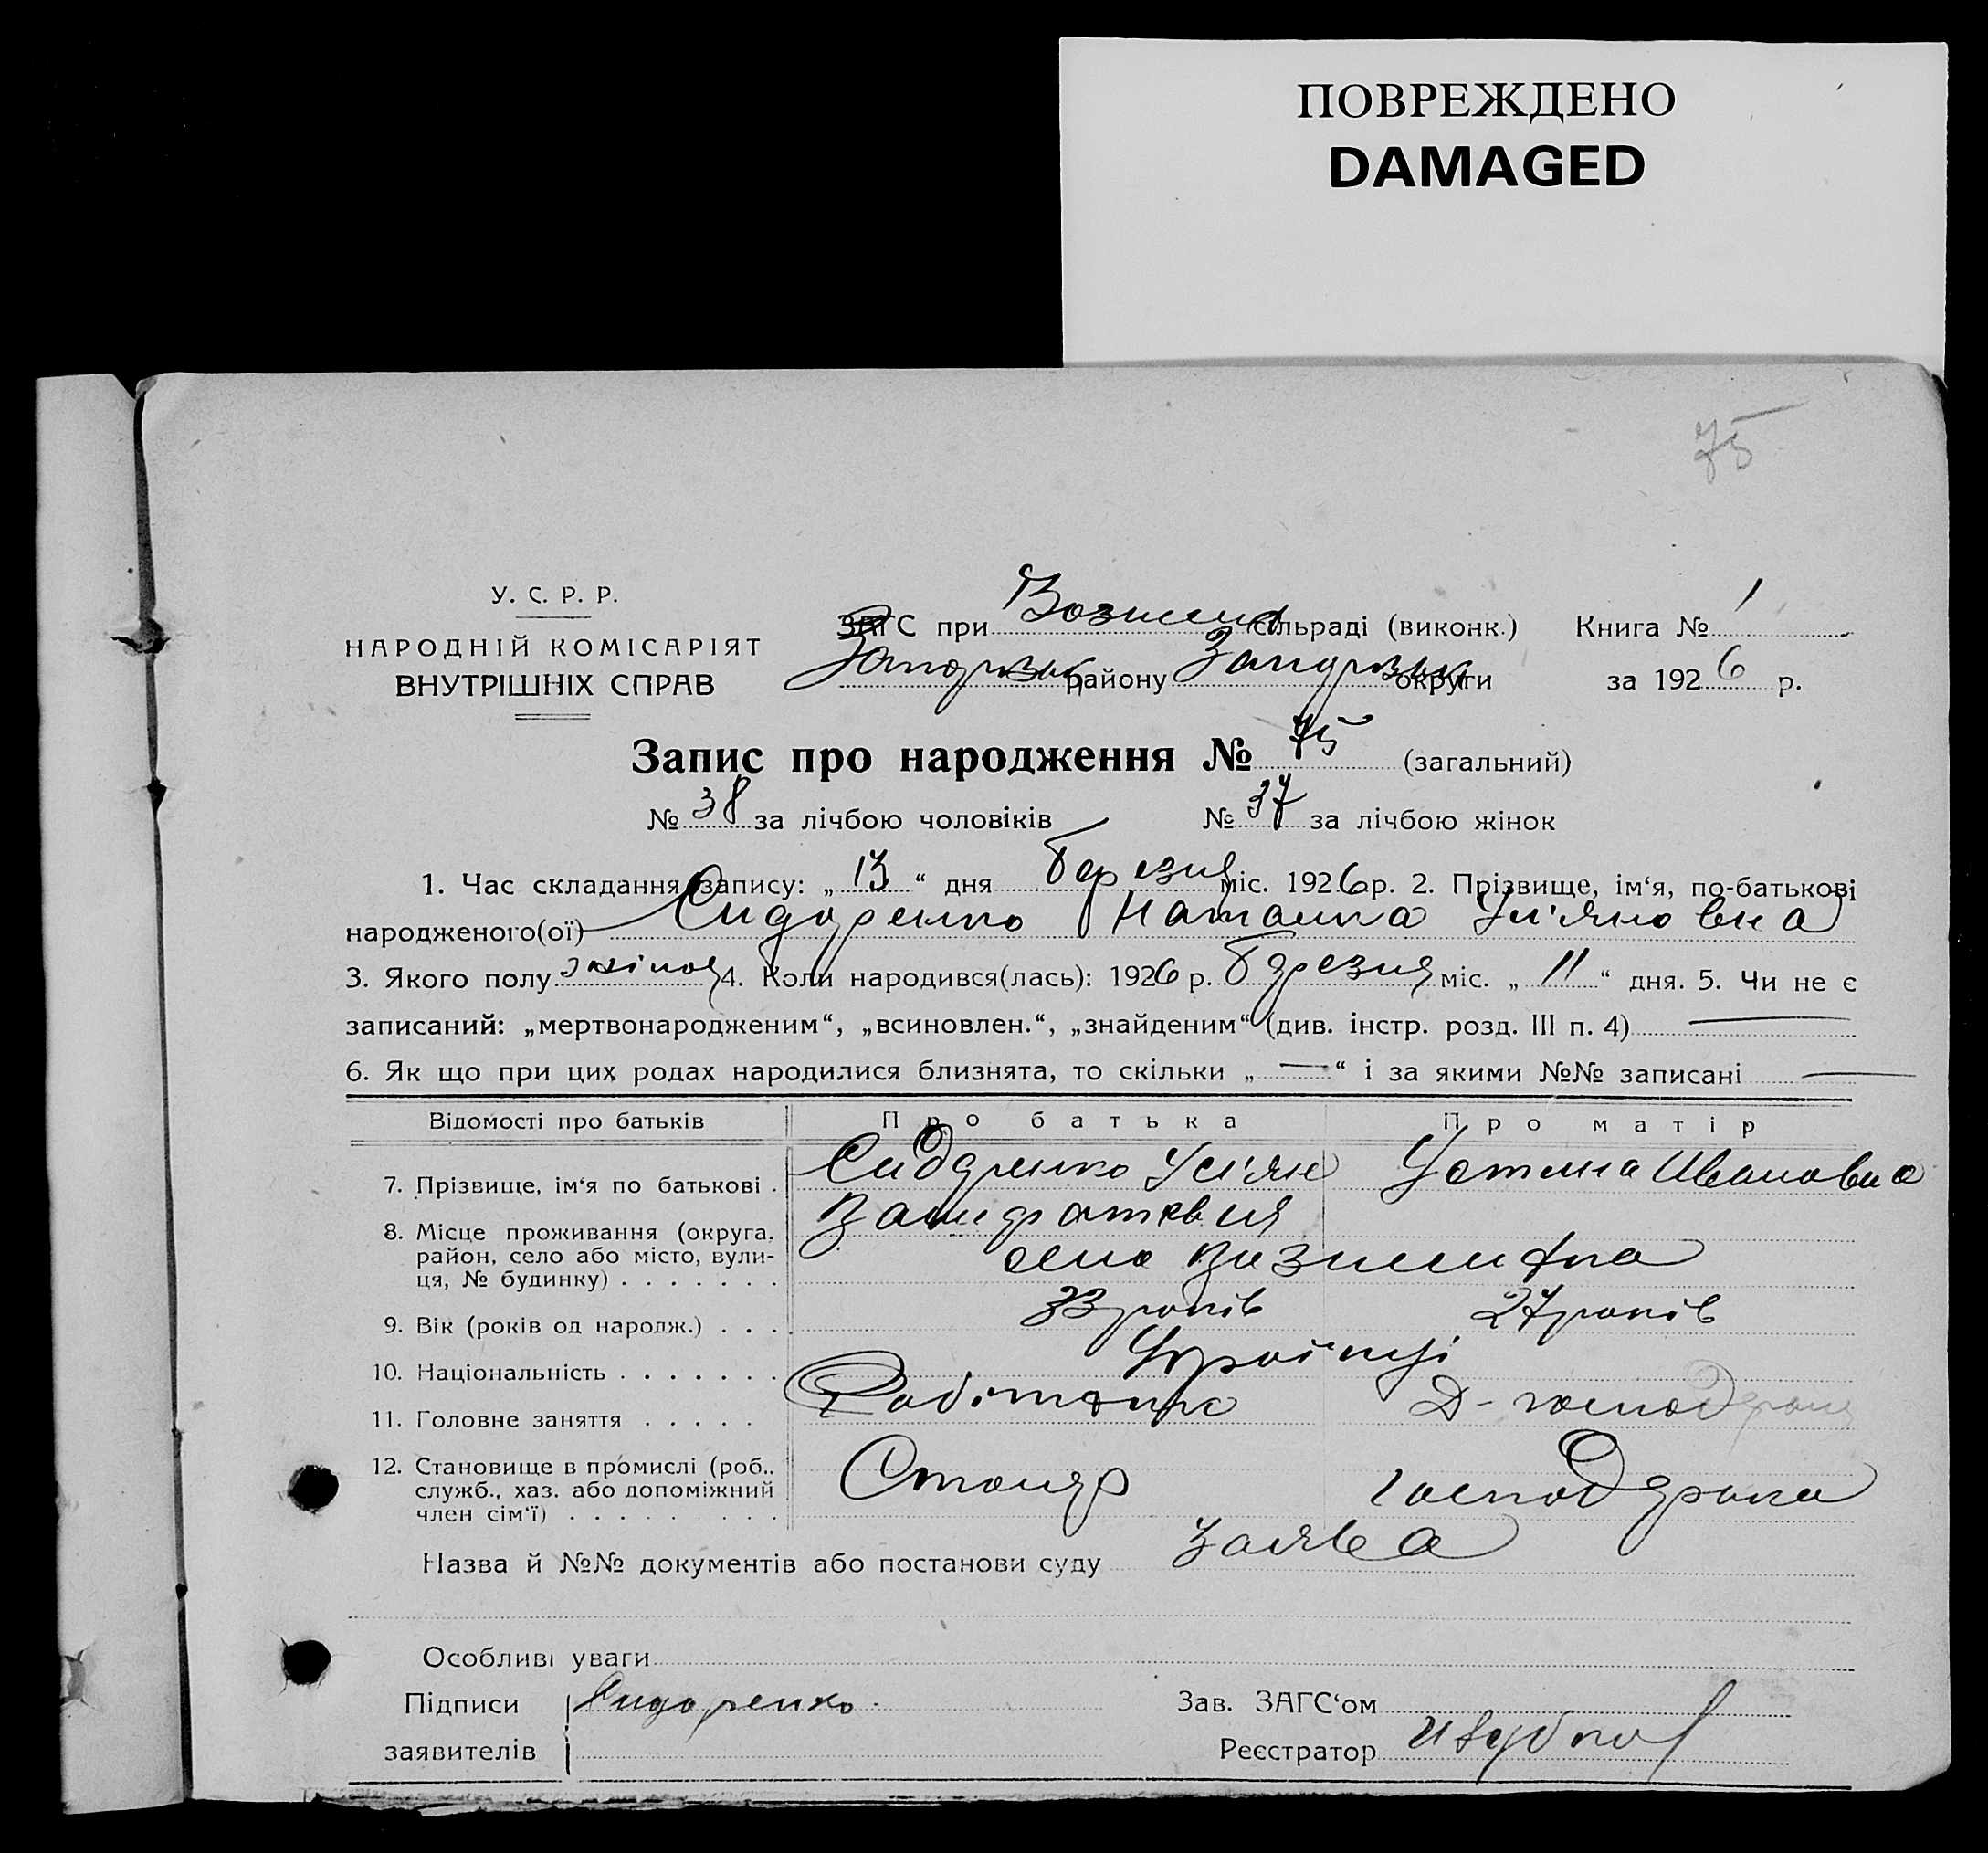 ПОВРЕЖДЕНО
DAMAGED
75
У. С. Р. Р.
НАРОДНІЙ КОМІСАРІЯТ
ВНУТРІШНІХ СПРАВ
ЗАГС при сільраді (виконк.) Книга № 1
району округи за 1926 р.
Запис про народження № 75 (загальний)
№ 38 за лічбою чоловіків № 37 за лічбою жінок
1. Час складання запису: „ 13 “ дня березня міс. 1926 р. 2. Прізвище, ім‘я, по-батькові
народженого(ої) Сидоренко Наталка Ул'яновна
3. Якого полу жіноч 4. Коли народився(лась): 1926 р. березня міс. „ 11 “ дня. 5. Чи не є
записаний: „мертвонародженим“, „всиновлен.“, „знайденим“ (див. інстр. розд. III п. 4) —
6. Як що при цих родах народилися близнята, то скільки „ — “ і за якими №№ записані —
Відомості про батьків Про батька Про матір
7. Прізвище, ім‘я по батькові . Сидоренко Ул'ян Устина Ивановна
8. Місце проживання (округа,
район, село або місто, вули-
ця, № будинку) . . . . . . . село
9. Вік (років од народж.) . . . . 33 років 27 років
10. Національність . . . . . . . Українці
11. Головне заняття . . . . . Робітник Д-господарка
12. Становище в промислі (роб.,
служб., хаз. або допоміжний
член сім‘ї) . . . . . . . . . Столяр господарка
Назва й №№ документів або постанови суду заява
Особливі уваги
Підписи Сидоренко. Зав. ЗАГС‘ом
заявителів Реєстратор